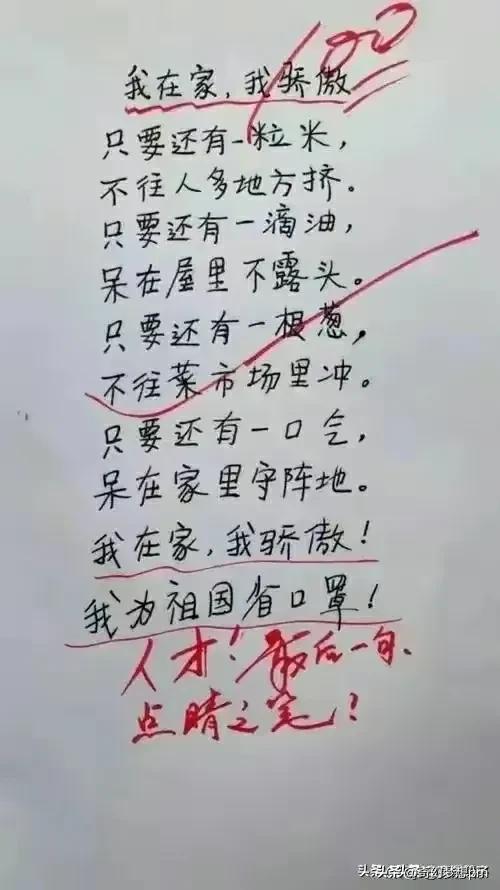 100
我在家,我骄傲
只要还有一粒米,
不往人多地方挤。
只要还有一滴油,
呆在屋里不露头。
只要还有一根葱,
不往菜市场里冲。
只要还有一口气,
呆在家里守阵地。
我在家,我骄傲!
我为祖国省口罩!
人才!最后一句、
点睛之笔!
头条 @奇幻梦想pm